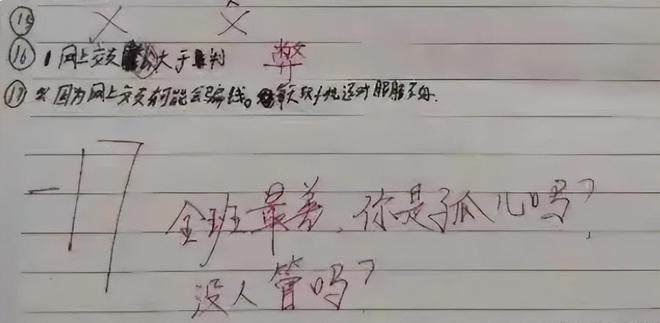 ⑮ × ×
⑯ 1 网上交友 大于 判 弊
⑰ 因为网上交友有可能会骗钱。 玩手机还对眼睛不好.
-17
全班最差,你是孤儿吗?
没人管吗?